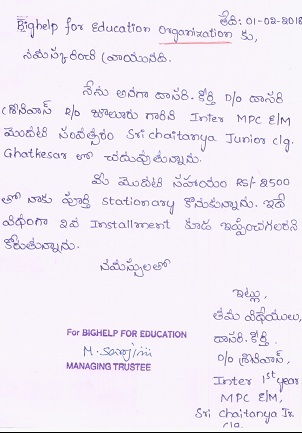 తేది: 01-02-2018
Bighelp for Education Organization కు,
నమస్కరించి వ్రాయునది.
నేను అనగా దాసరి. కీర్తి D/o దాసరి
శ్రీనివాస్ R/o బూరుగు గారిది Inter MPC E/M
మొదటి సంవత్సరం Sri chaitanya Junior clg.
Ghatkesar లో చదువుతున్నాను.
మీ మొదటి సహాయం RS/- 2500
తో నాకు పూర్తి stationary కొనుకున్నాను. ఇదే
విధంగా 2వ Installment కూడ ఇప్పించగలరని
కోరుతున్నాను.
నమస్సులతో
ఇట్లు,
తమ విధేయులు,
దాసరి. కీర్తి.
D/o శ్రీనివాస్,
Inter 1st year
MPC E/M,
Sri Chaitanya Jr.
clg.
For BIGHELP FOR EDUCATION
M. Sarojini
MANAGING TRUSTEE